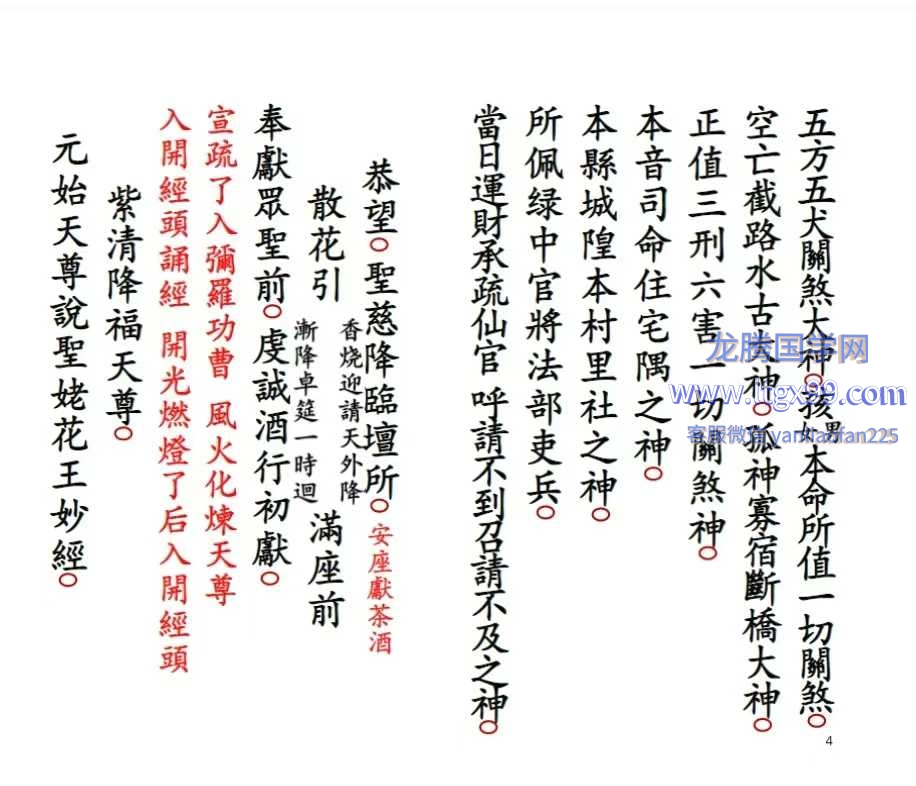 五方五犬關煞大神○孩男女本命所值一切關煞○
空亡截路水古大神○孤神寡宿斷橋大神○
正值三刑六害一切關煞神○
本音司命住宅隅之神○
本縣城隍本村里社之神○
所佩绿中官將法部吏兵○
當日運財承疏仙官 呼請不到召請不及之神○
恭望○聖慈降臨壇所○安座獻茶酒
散花引 香烧迎請天外降 漸降卓筵一時迴 滿座前
奉獻眾聖前○虔誠酒行初獻○
宣疏了入彌羅功曹 風火化煉天尊
入開經頭誦經 開光燃燈了后入開經頭
紫清降福天尊○
元始天尊說聖姥花王妙經○
4
龙腾国学网
www.ltgx99.com
客服微信 yanliaofan225